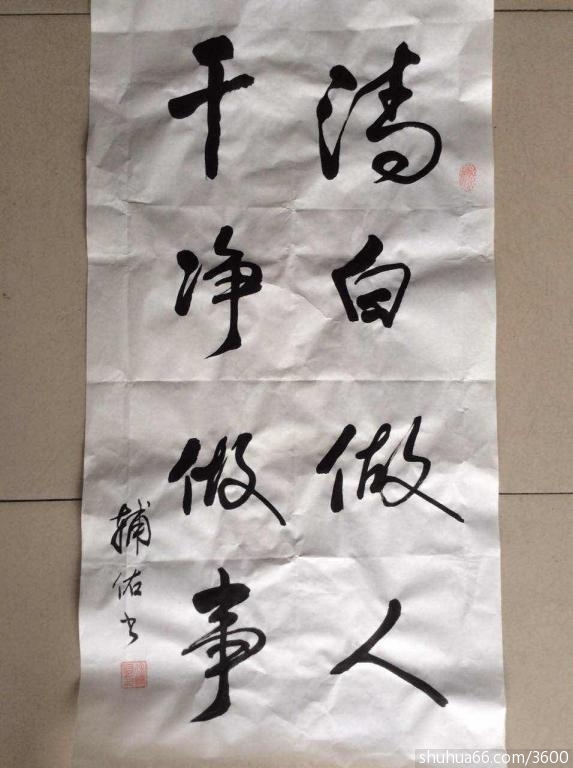 清白做人
干净做事
辅佑书
shuhua66.com/3600